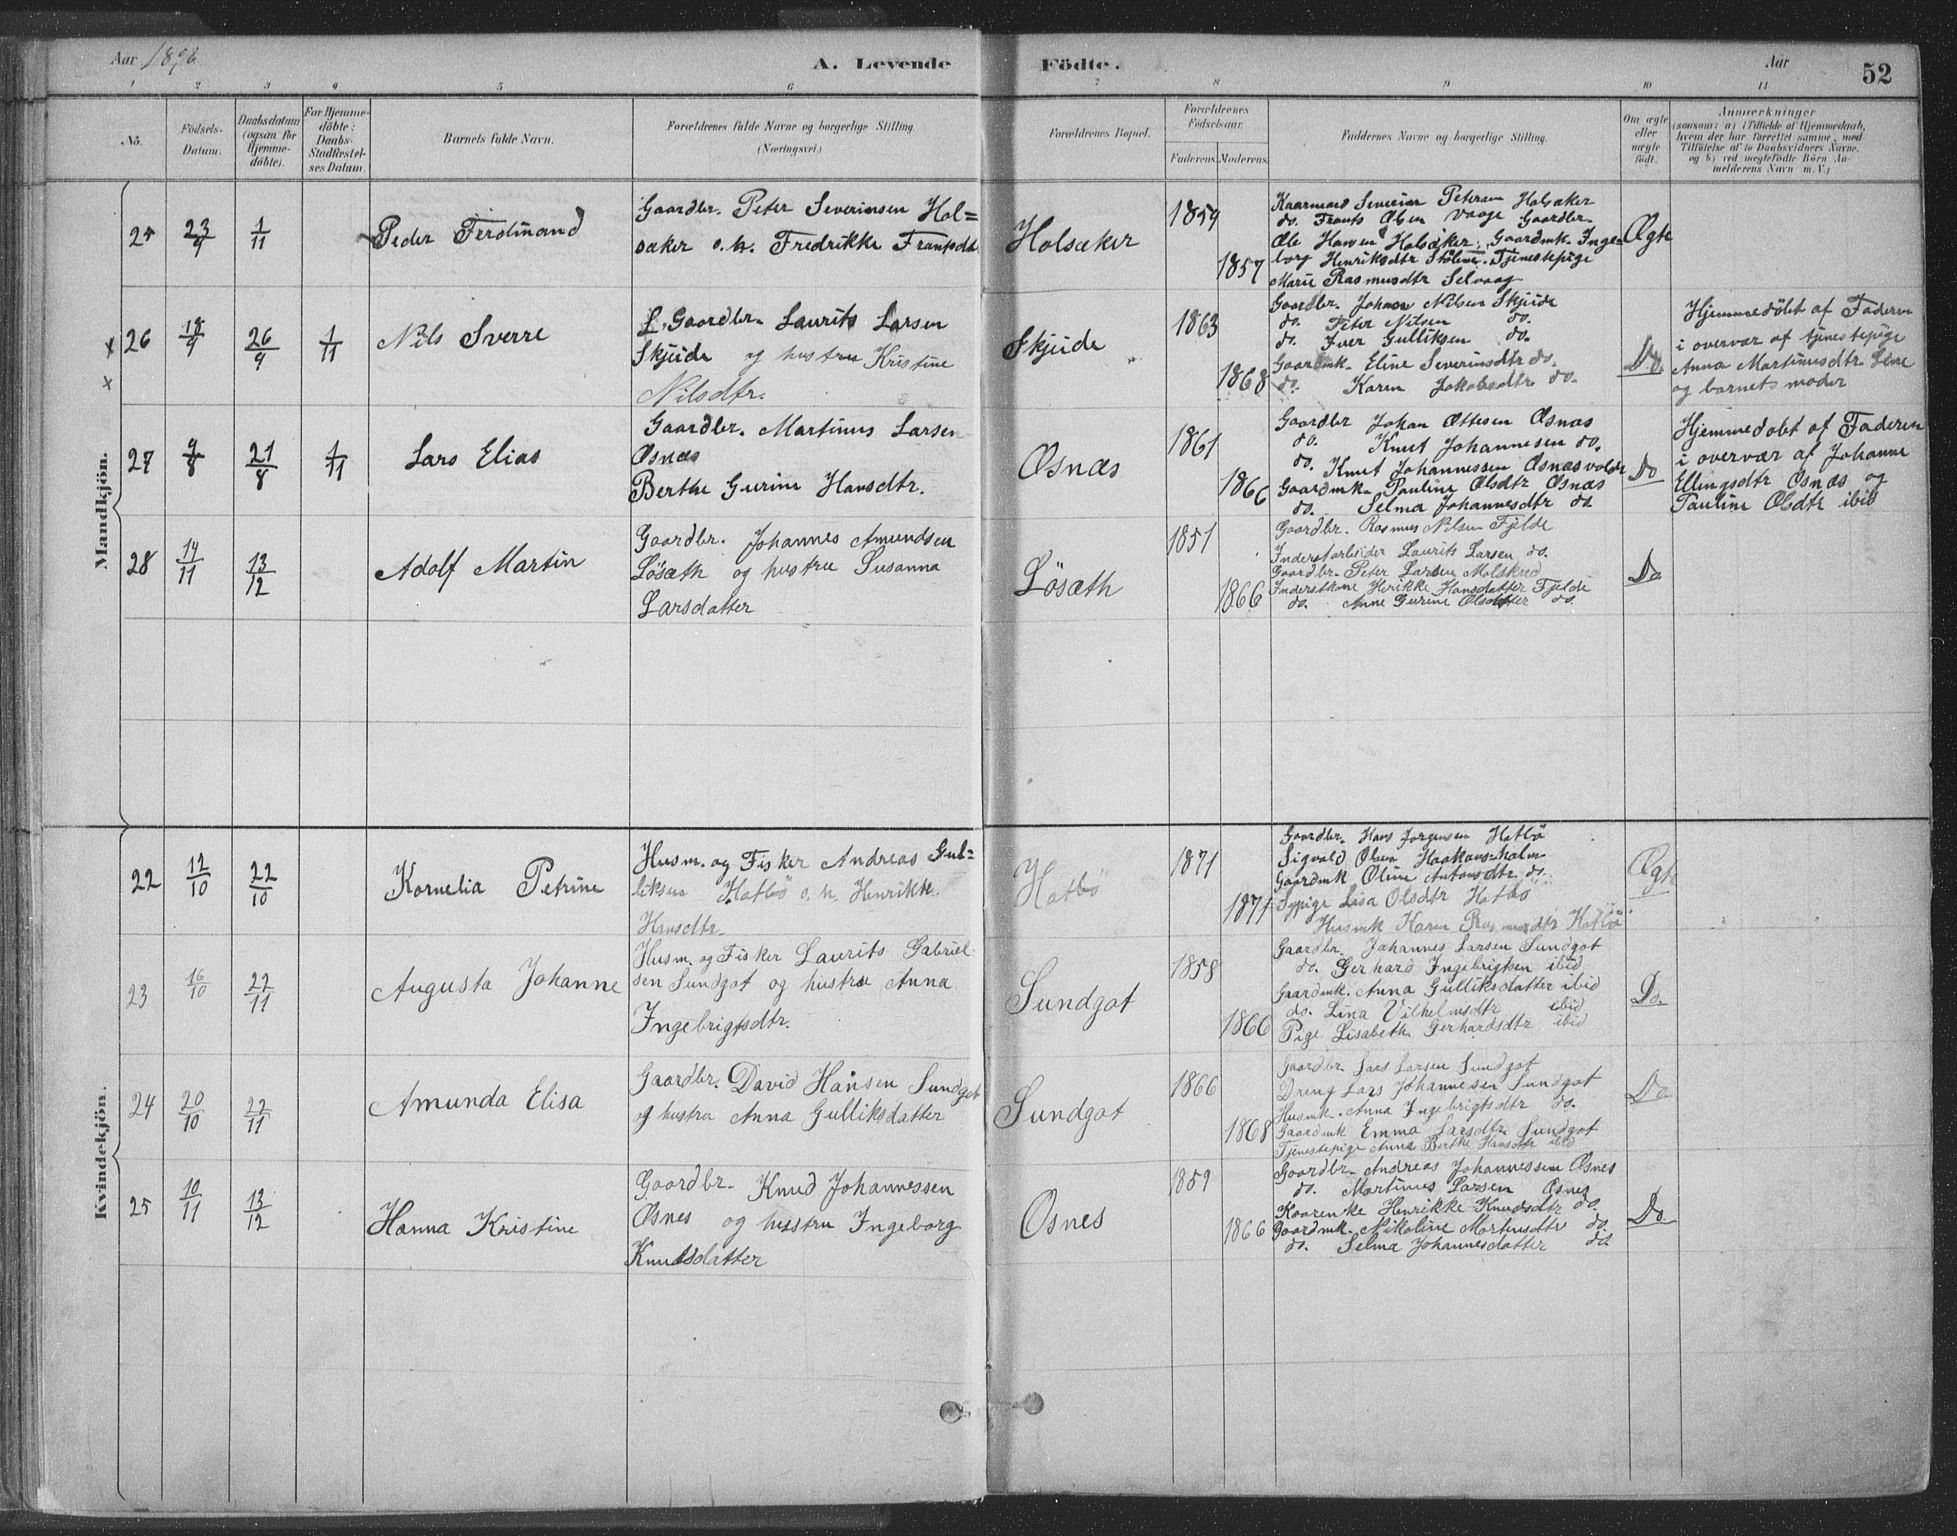 Aar 1896
A. Levende
Födte.
Aar
52
1 2 3 4 5 6 7 8 9 10 11
No.
Födsels-
Datum.
Daabsdatum
(ogsaa for
Hjemme-
döbte).
For Hjemme-
döbte:
Daabs-
Stadfæstel-
ses Datum.
Barnets fulde Navn.
Forældrenes fulde Navne og borgerlige Stilling.
(Næringsvei.)
Forældrenes Bopæl.
Forældrenes
Födselsaar.
Faderens. Moderens.
Faddernes Navne og borgerlige Stilling.
Om ægte
eller
uægte
födt.
Anmærkninger
(saasom: a) i Tilfælde af Hjemmedaab,
hvem der har forrettet samme, med
Tilföielse af to Daabsvidners Navne,
og b) ved uægtefödte Börn An-
melderens Navn m. V.)
Mandkjön.
25
23/9
1/11
Peder Ferdinand
Gaardbr. Peter Severinsen Hol=
sæker o. h. Fredrikke Frantsdtr
Holsæker
1859
1857
Kaarmand Severin Petersen Holsæker
do. Frants Olsen Vaage Gaardbr.
Ole Hansen Holsæker. Gaardmk. Inge-
borg Henriksdtr Stölene. Tjenestepige
Marie Rasmusdtr Selvaag
Ægte
26
26/9
1/11
Nils Sverre
L. Gaardbr. Laurits Larsen
Skjeide og hustru Kristine
Nilsdtr.
Skjeide
1863
1868
Gaardbr. Johan Nilsen Skjeide
do. Peter Nilsen do.
do. Iver Gulliksen do.
Gaardmk. Eline Severinsdtr do.
do. Karen Jakobsdtr do.
Do.
Hjemmedöbt af Faderen
i overvær af tjenestepige
Anna Martinusdtr
og barnets moder
27
9/8
21/8
1/11
Lars Elias
Gaardbr. Martinus Larsen
Osnæs
Berthe Gurine Hansdtr.
Osnæs
1861
1866
Gaardbr Johan Ottesen Osnæs
do. Knut Johannesen do.
do. Knut Johannessen Osnæsvolde
Gaardmk. Pauline Olsdtr Osnæs
do. Selma Johannesdtr do
Do
Hjemmedöbt af Faderen
i overvær af Johanne
Ellingsdtr Osnæs og
Pauline Olsdtr ibid
28
14/11
13/12
Adolf Martin
Gaardbr. Johannes Amundsen
Lösæth og hustru Susanna
Larsdatter
Lösæth
1851
1866
Gaardbr. Rasmus Nilsen Fjelde
Inderstarbeider Laurits Larsen do.
Gaardbr. Peter Larsen Molskred
Inderstkone Henrikke Hansdatter Fjelde
do. Anne Gurine Olsdatter do.
Do
Kvindekjön.
22
12/10
22/10
Kornelia Petrine
Husm. og Fisker Andreas Gul=
liksen Hatlö o. h. Henrikke
Hansdtr.
Hatlö
1871
1871
Gaardbr. Hans Jørgensen Hatlö
Sigvald Olsen Haakonsholm
Gaardmk Oline Antonsdtr do.
Sypige Lasa Olsdtr Hatlö
Husmk Karen Rasmusdtr Hatlö
Ægte
23
16/10
22/11
Augusta Johanne
Husm. og Fisker Laurits Gabriel
sen Sundgot og hustru Anna
Ingebrigtsdtr.
Sundgot
1858
1866
Gaardbr. Johannes Larsen Sundgot
do. Gerhard Ingebrigtsen ibid
Gaardmk. Anna Gulliksdatter ibid
do. Lina Vilhelmsdtr ibid
Pige Lisabeth Gerhardsdtr ibid
Do.
24
20/10
22/11
Amunda Elisa
Gaardbr. David Hansen Sundgot
og hustru Anna Gulliksdatter
Sundgot
1866
1868
Gaardbr. Lars Larsen Sundgot
Dreng Lars Johannesen Sundgot
Husmk. Anna Ingebrigtsdtr do.
Gaardmk Emma Larsdtr Sundgot
Tjenestepige Anna Berthe Hansdtr ibid
Do
25
10/11
13/12
Hanna Kristine
Gaardbr. Knud Johannessen
Osnes og hustru Ingeborg
Knudsdatter
Osnes
1859
1866
Gaardbr. Andreas Johannessen Osnes
do. Martinus Larsen Osnes
Kaarenke Henrikke Knudsdtr do.
Gaardmk. Nikoline Mortensdtr do.
do. Selma Johannesdatter do.
Do.